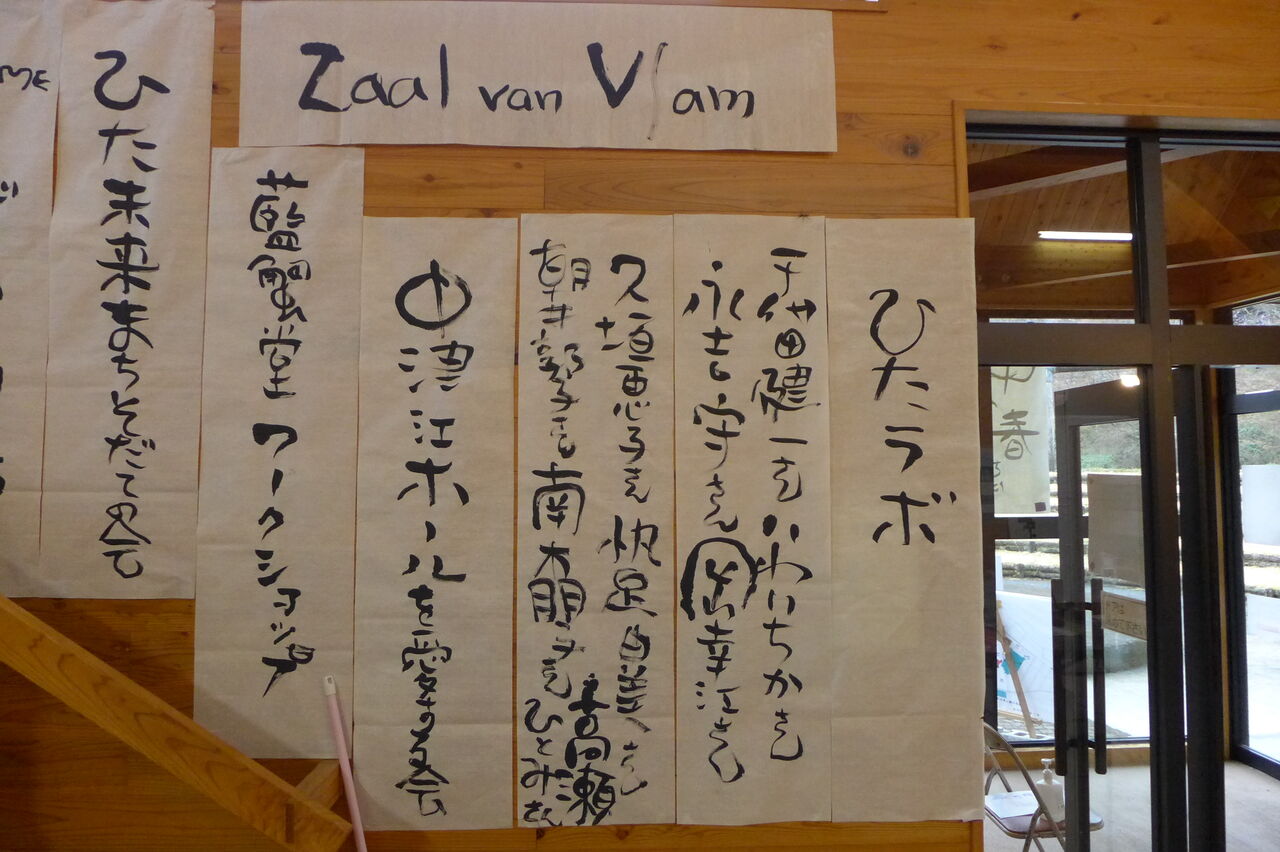 Zaal van Vlam
ひたラボ
千代田健一さん いわいちかさん
永吉守さん 岡幸江さん
久垣恵子さん 帆足由美さん
朝井
南木朋子さん
高瀬ひとみさん
中津江ホールを愛する会
藍蟹堂 ワークショップ
ひた未来まちそだての会
春